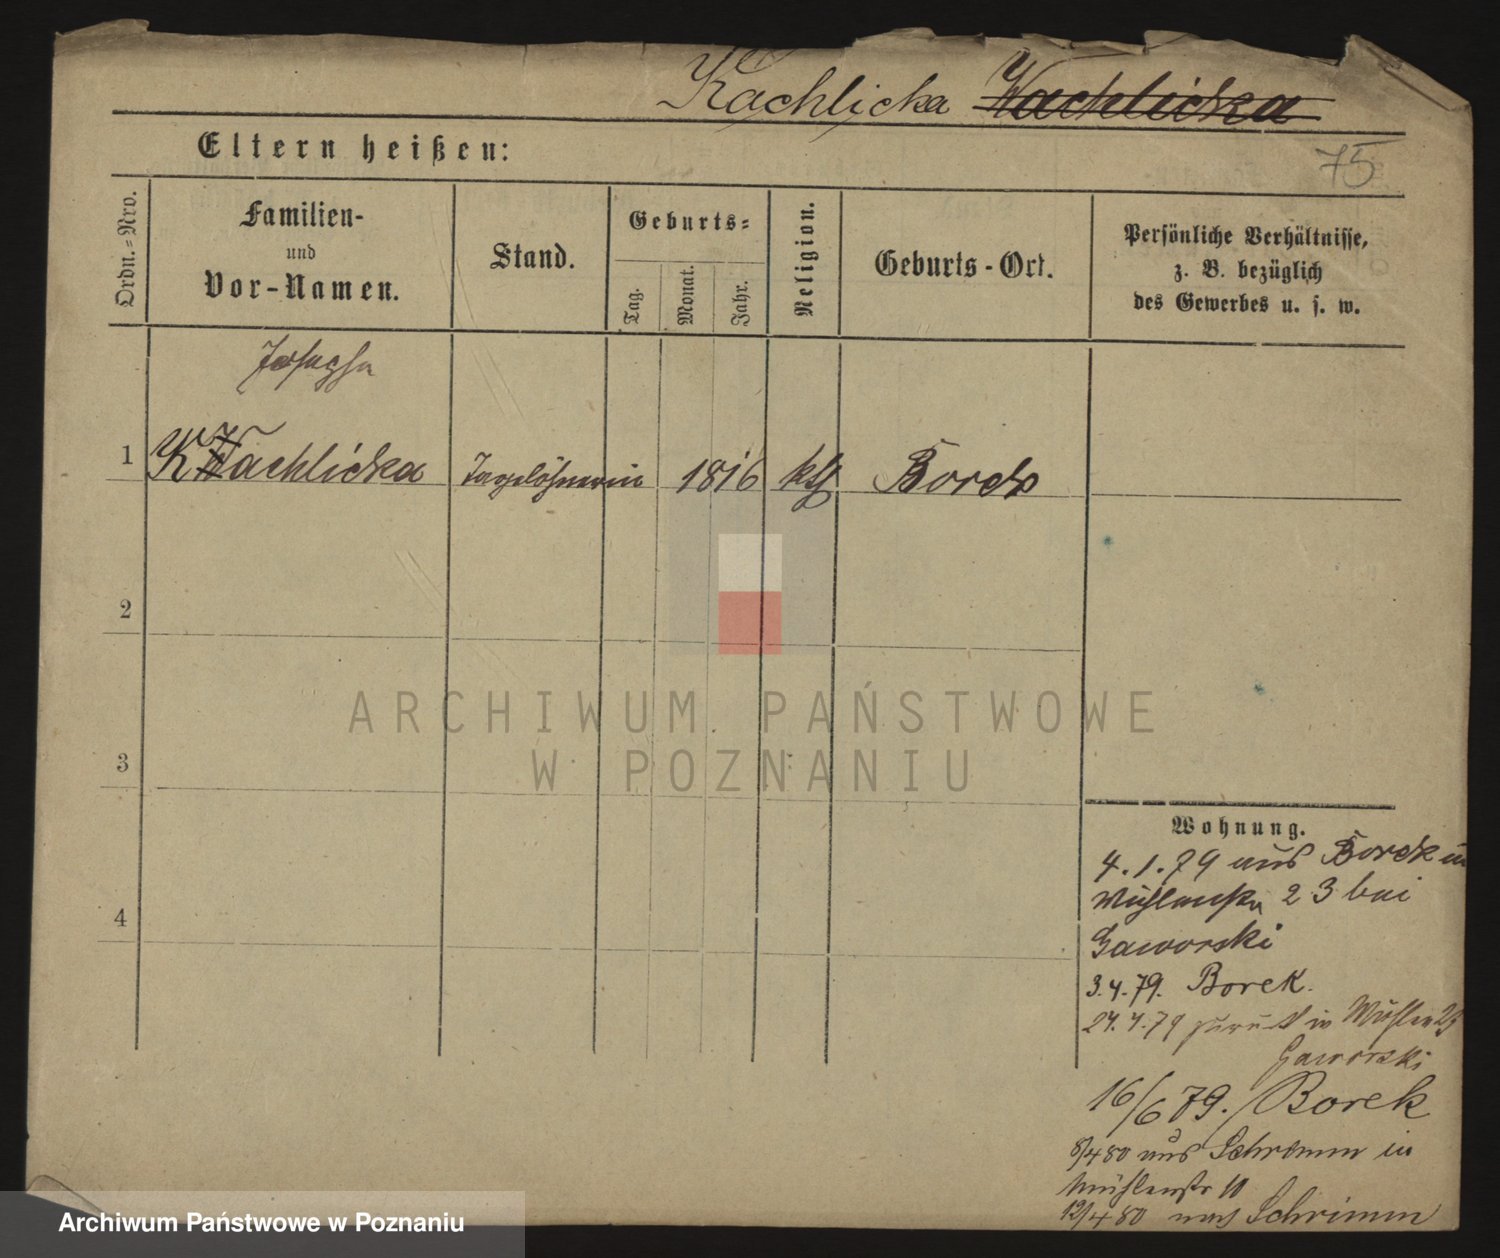 Kachlicka Wachlicka
75
Eltern heißen:
Ordn.-Nro.
Familien-
und
Vor-Namen.
Stand.
Geburts-
Tag.
Monat.
Jahr.
Religion.
Geburts-Ort.
Persönliche Verhältnisse,
z. B. bezüglich
des Gewerbes u. s. w.
Josepha
1 Kachlicka Tagelöhnerin 1816 kth Borek
2
3
4
ARCHIWUM PAŃSTWOWE
W POZNANIU
Wohnung.
4.1.79 aus Borek in
Mühlenstr 23 bei
Gaworski
3.4.79. Borek.
24.4.79 zurück in Mühlen 23
Gaworski
16/6 79. Borek
8/4 80 aus Schrimm in
Mühlenstr 10
12/4 80 nach Schrimm
Archiwum Państwowe w Poznaniu